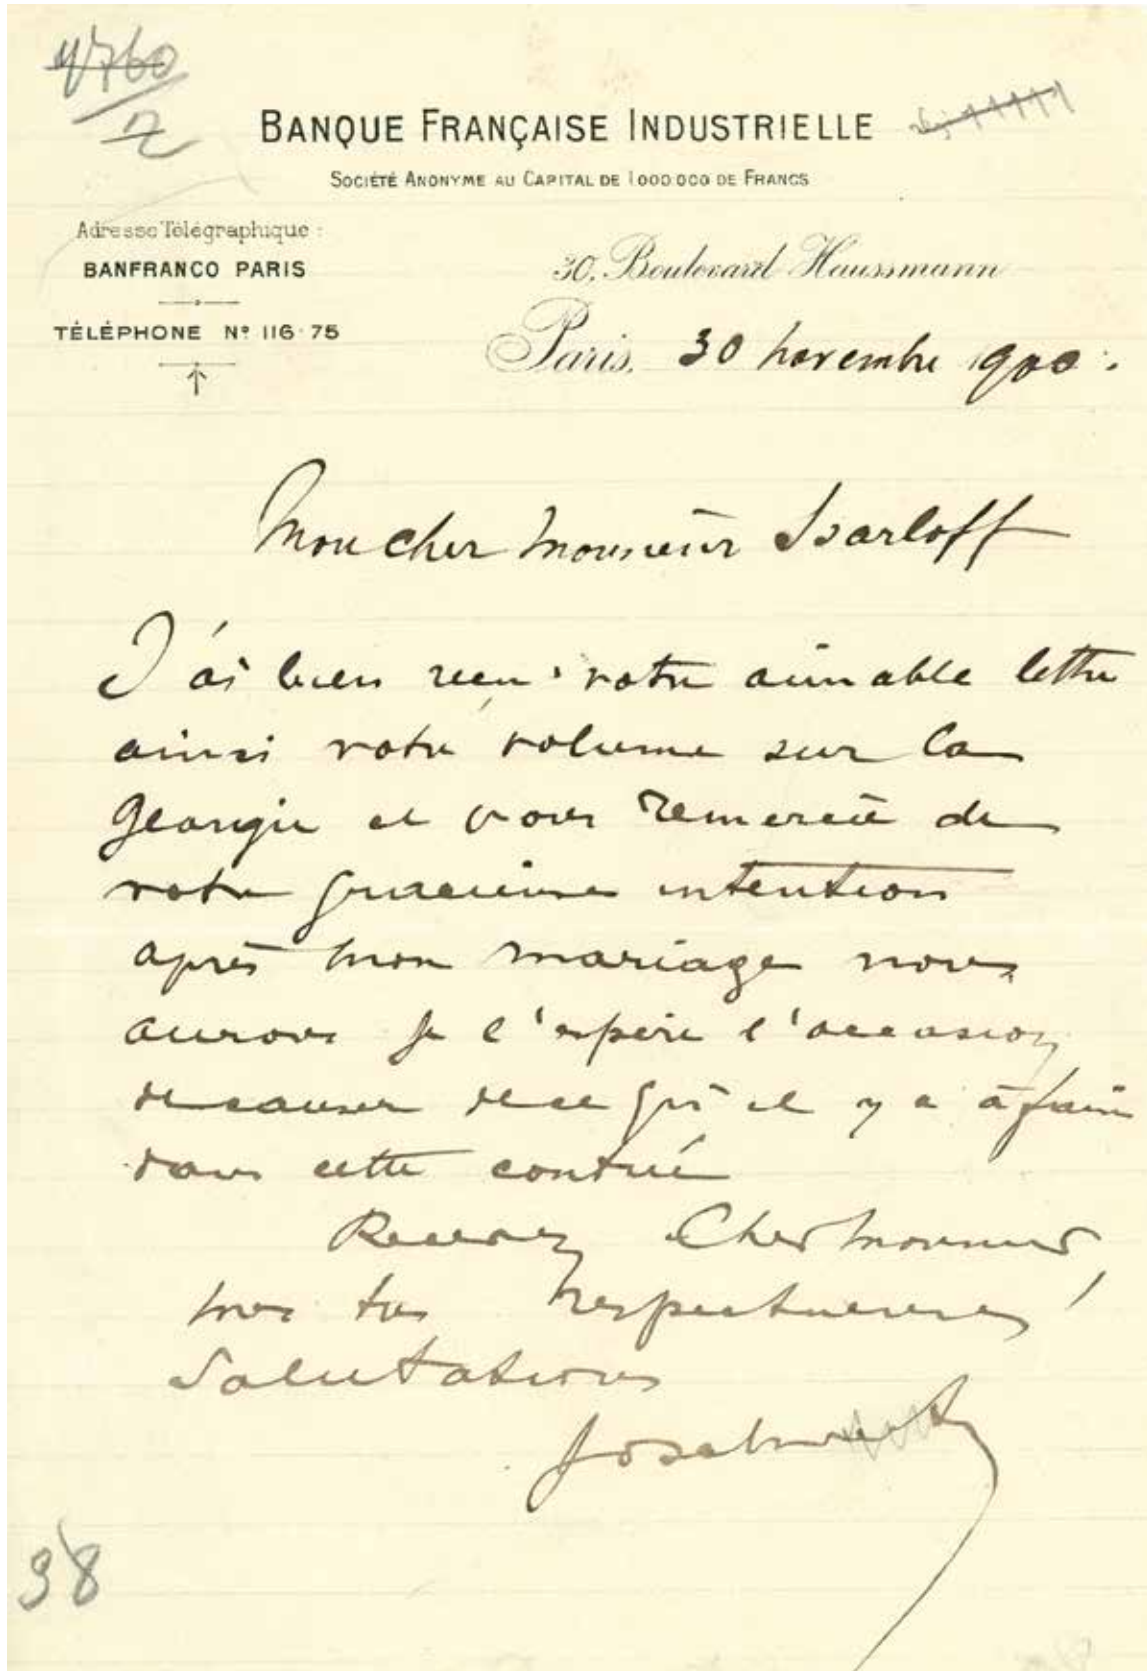 4760
2
BANQUE FRANÇAISE INDUSTRIELLE
SOCIÉTÉ ANONYME AU CAPITAL DE 1000.000 DE FRANCS
Adresse Télégraphique :
BANFRANCO PARIS
TÉLÉPHONE Nº 116-75
30, Boulevard Haussmann
Paris, 30 novembre 1900.
Mon cher Monsieur Isarloff
J'ai bien reçu votre aimable lettre
ainsi votre volume sur la
Georgie et vous remercie de
votre gracieuse intention
après mon mariage nous
aurons je l'espère l'occasion
de causer de ce qu'il y a à faire
dans cette contrée
Recevez Cher Monsieur,
mes très respectueuses
Salutations
98